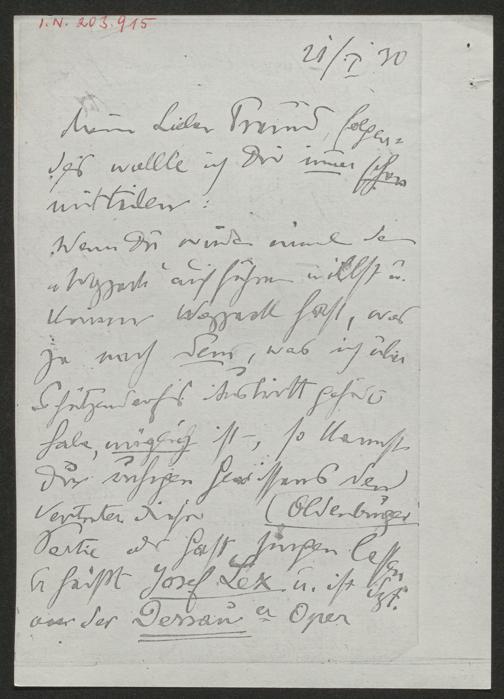 I.N. 203.915
21/I 30
Mein Lieber Freund, folgen=
des wollte ich Dir immer schon
mitteilen:
Wenn Du wieder einmal den
„Wozzeck“ aufführen willst u.
keinen Wozzeck hast, was
ja nach dem, was ich über
Schützendorfs Austritt gehört
habe, möglich ist –, so kannst
Du ruhigen Gewissens den
Vertreter dieser (Oldenburger
Partie als Gast singen lassen
Er heißt Josef Lex u. ist jzt.
an der Dessauer Oper